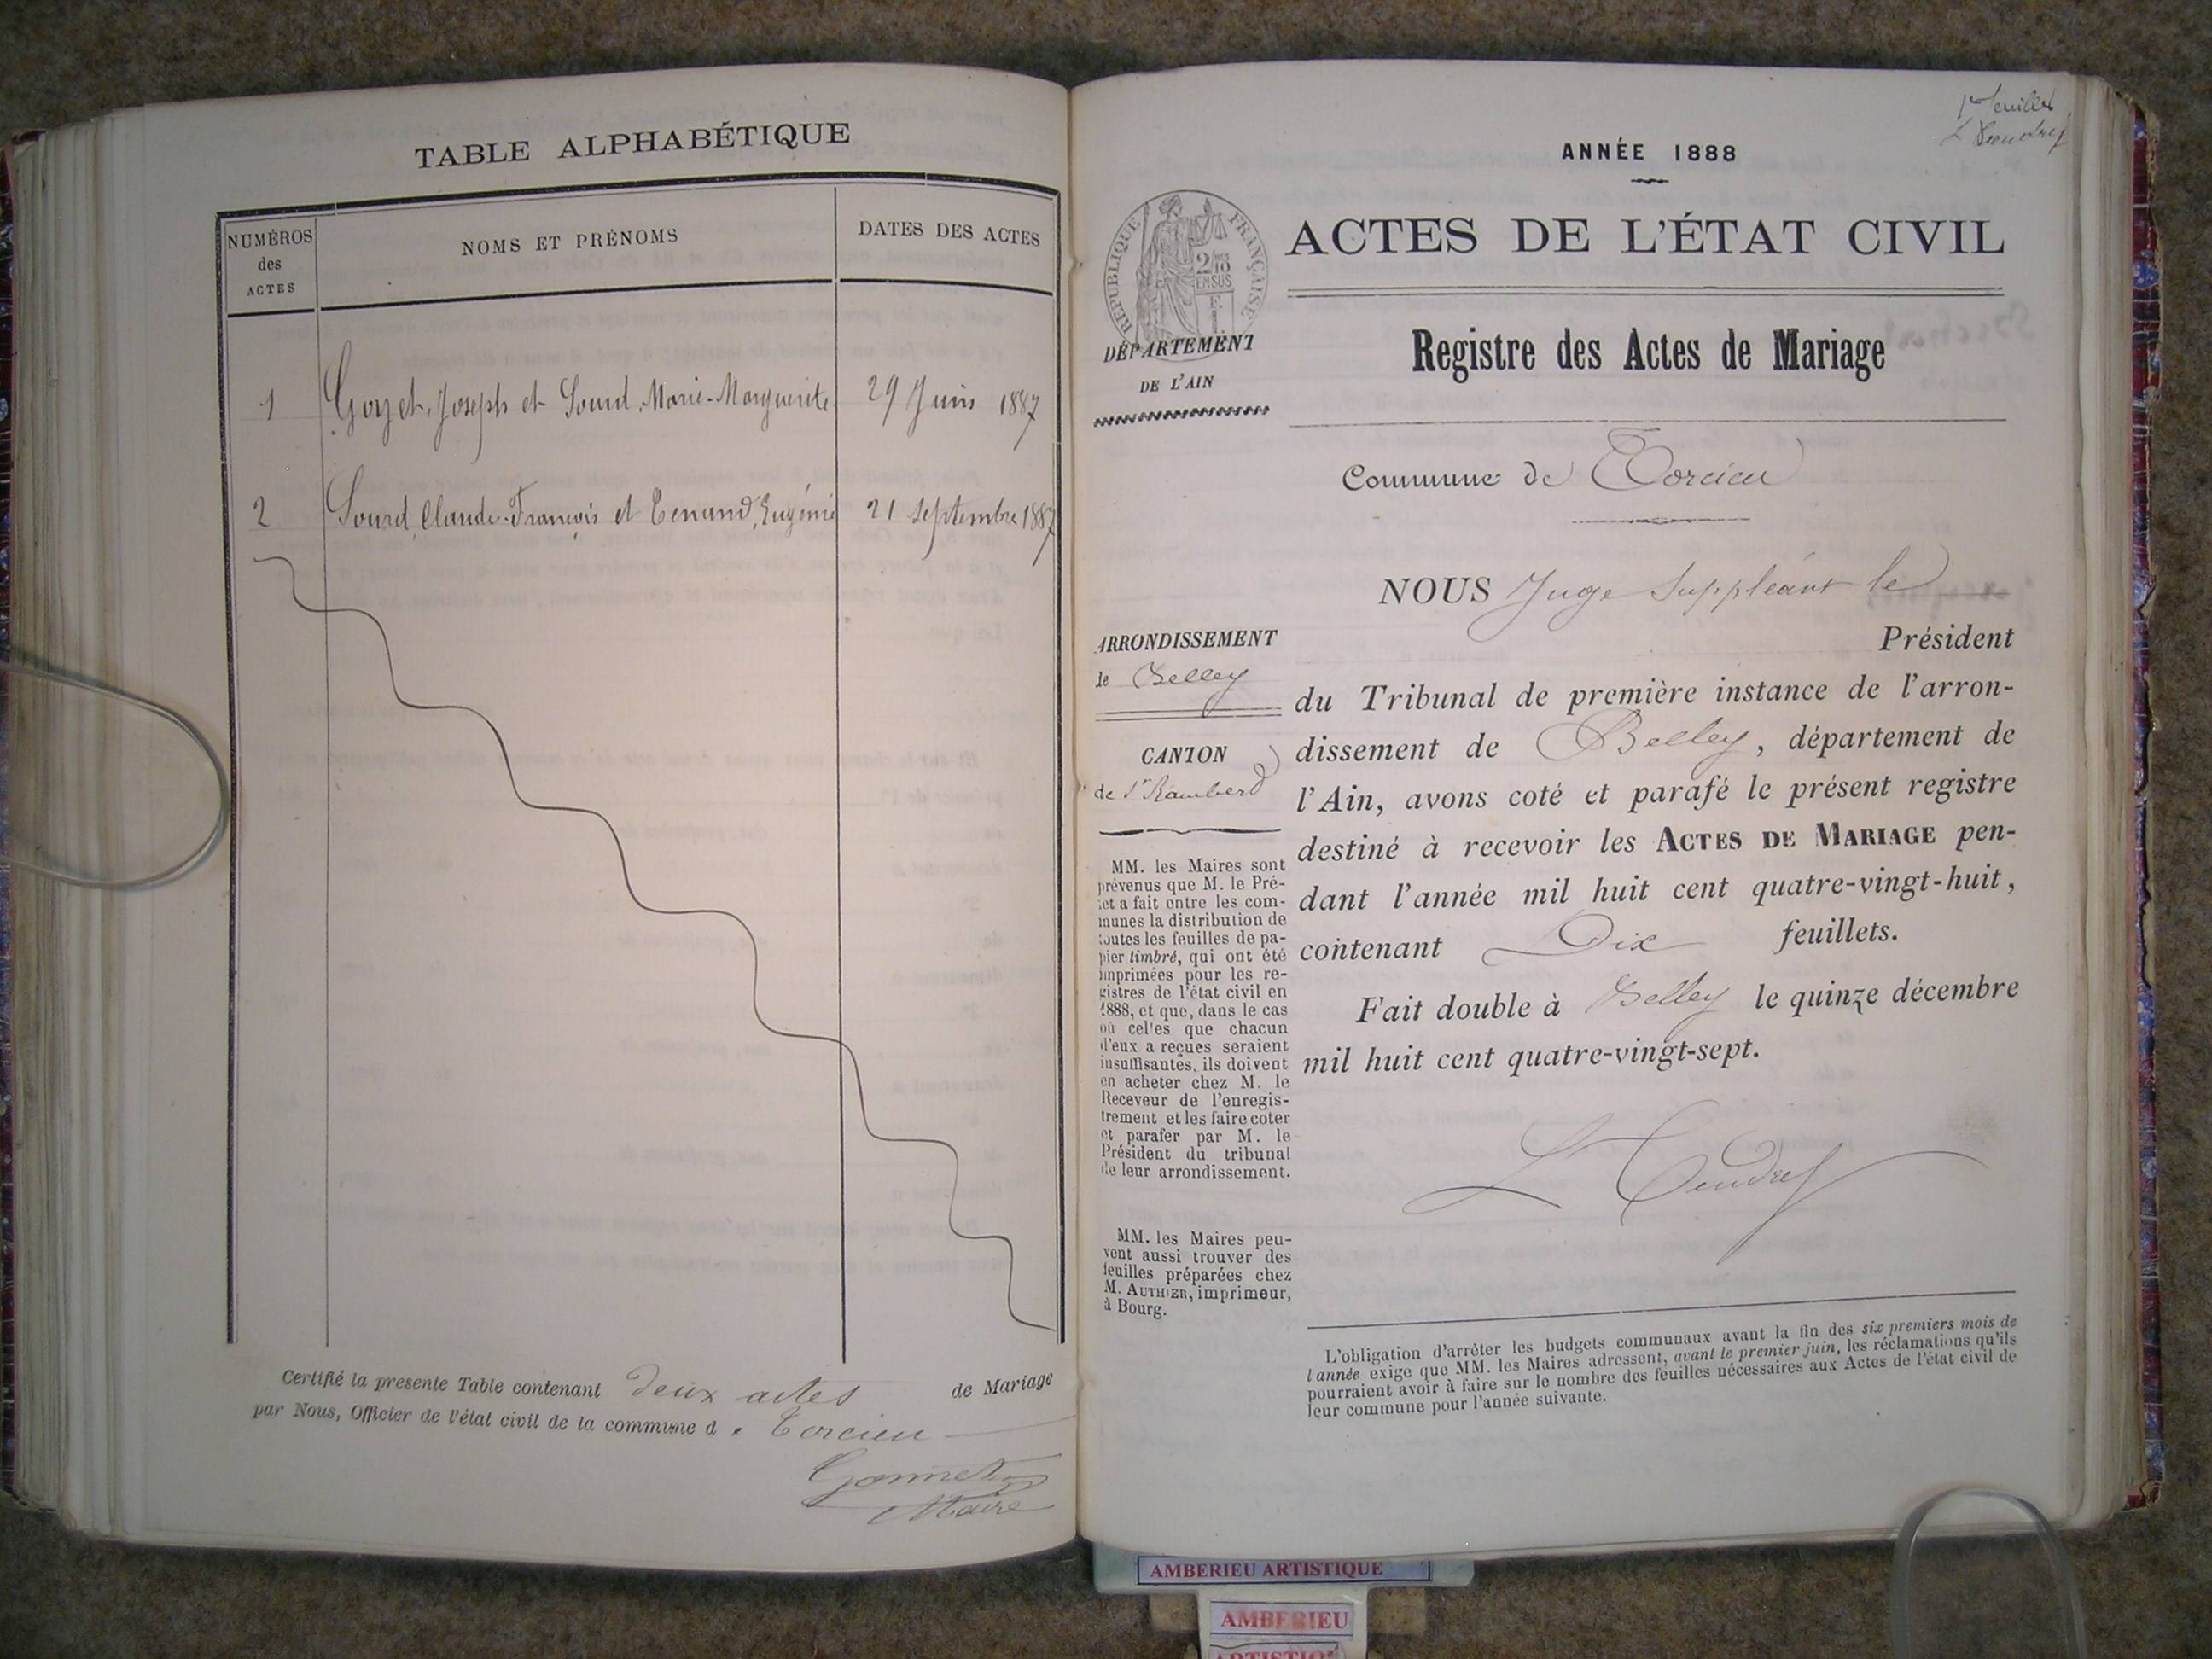 TABLE ALPHABÉTIQUE
NUMÉROS
des
ACTES
NOMS ET PRÉNOMS
DATES DES ACTES
1 Goyet, Joseph et Sourd, Marie-Marguerite 29 Juin 1887
2 Sourd, Claude-François et Tenand, Eugénie 21 septembre 1887
Certifié la présente Table contenant deux actes de Mariage
par Nous, Officier de l'état civil de la commune de Torcieu
Maire
1er feuillet
ANNÉE 1888
RÉPUBLIQUE FRANÇAISE
2/10
EN SUS
ACTES DE L'ÉTAT CIVIL
DÉPARTEMENT
DE L'AIN
Registre des Actes de Mariage
Commune de Torcieu
NOUS Juge Suppléant le
Président
du Tribunal de première instance de l'arron-
dissement de Belley, département de
l'Ain, avons coté et parafé le présent registre
destiné à recevoir les ACTES DE MARIAGE pen-
dant l'année mil huit cent quatre-vingt-huit,
contenant Dix feuillets.
Fait double à Belley le quinze décembre
mil huit cent quatre-vingt-sept.
ARRONDISSEMENT
de Belley
CANTON
de St Rambert
MM. les Maires sont
prévenus que M. le Pré-
fet a fait entre les com-
munes la distribution de
toutes les feuilles de pa-
pier timbré, qui ont été
imprimées pour les re-
gistres de l'état civil en
1888, et que, dans le cas
où celles que chacun
d'eux a reçues seraient
insuffisantes, ils doivent
en acheter chez M. le
Receveur de l'enregis-
trement et les faire coter
et parafer par M. le
Président du tribunal
de leur arrondissement.
MM. les Maires peu-
vent aussi trouver des
feuilles préparées chez
M. AUTHIER, imprimeur,
à Bourg.
L'obligation d'arrêter les budgets communaux avant la fin des six premiers mois de
l'année exige que MM. les Maires adressent, avant le premier juin, les réclamations qu'ils
pourraient avoir à faire sur le nombre des feuilles nécessaires aux Actes de l'état civil de
leur commune pour l'année suivante.
AMBERIEU ARTISTIQUE
AMBERIEU
ARTISTIQUE